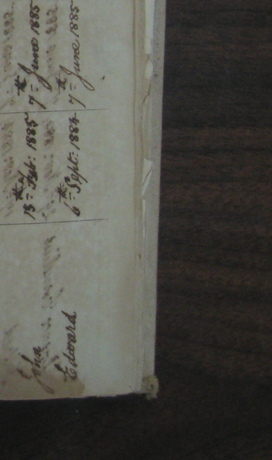 John 13th Feb: 1885 7th June 1885
Edward 6th Sept: 1884 7th June, 1885